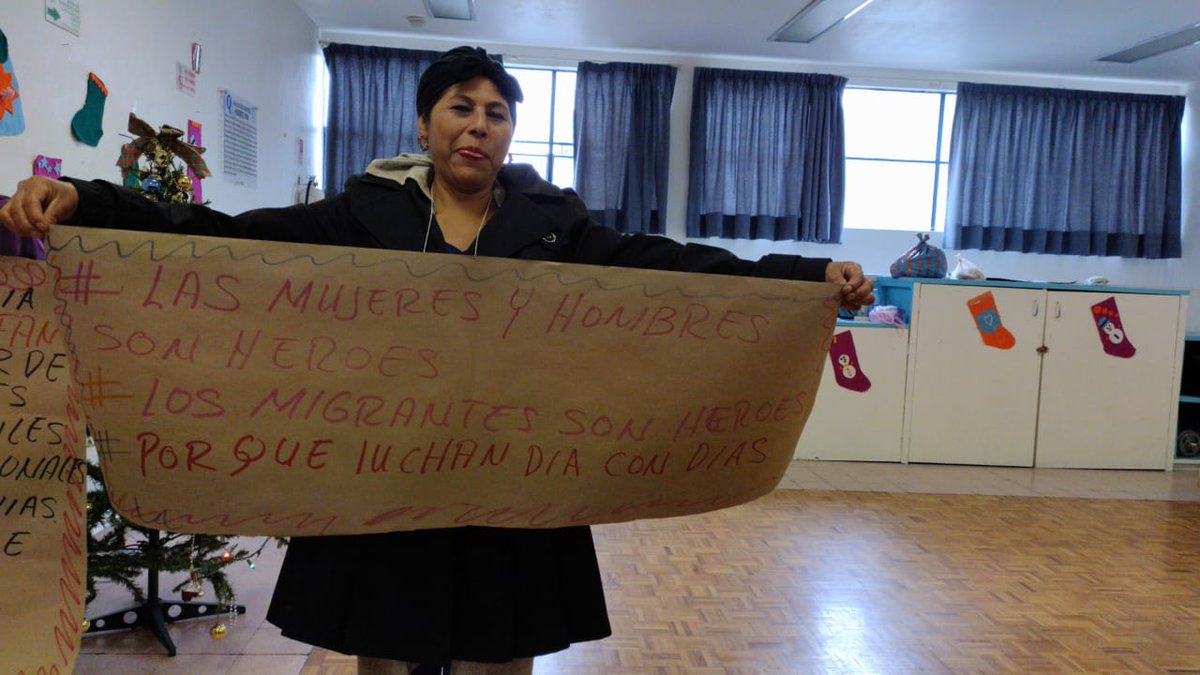 # LAS MUJERES Y HOMBRES
SON HEROES
# LOS MIGRANTES SON HEROES
# PORQUE lUCHAN DIA CON DIAS
IA
FAN
R DE
ES
ILES
ONALES
IAS
E